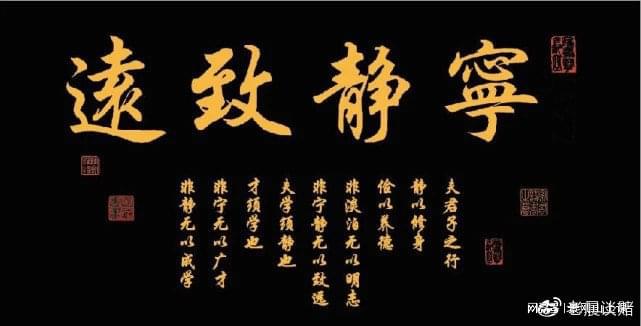 寧静致遠
夫君子之行
静以修身
俭以养德
非淡泊无以明志
非宁静无以致遠
夫学须静也
才须学也
非宁无以广才
非静无以成学
老展谈赌